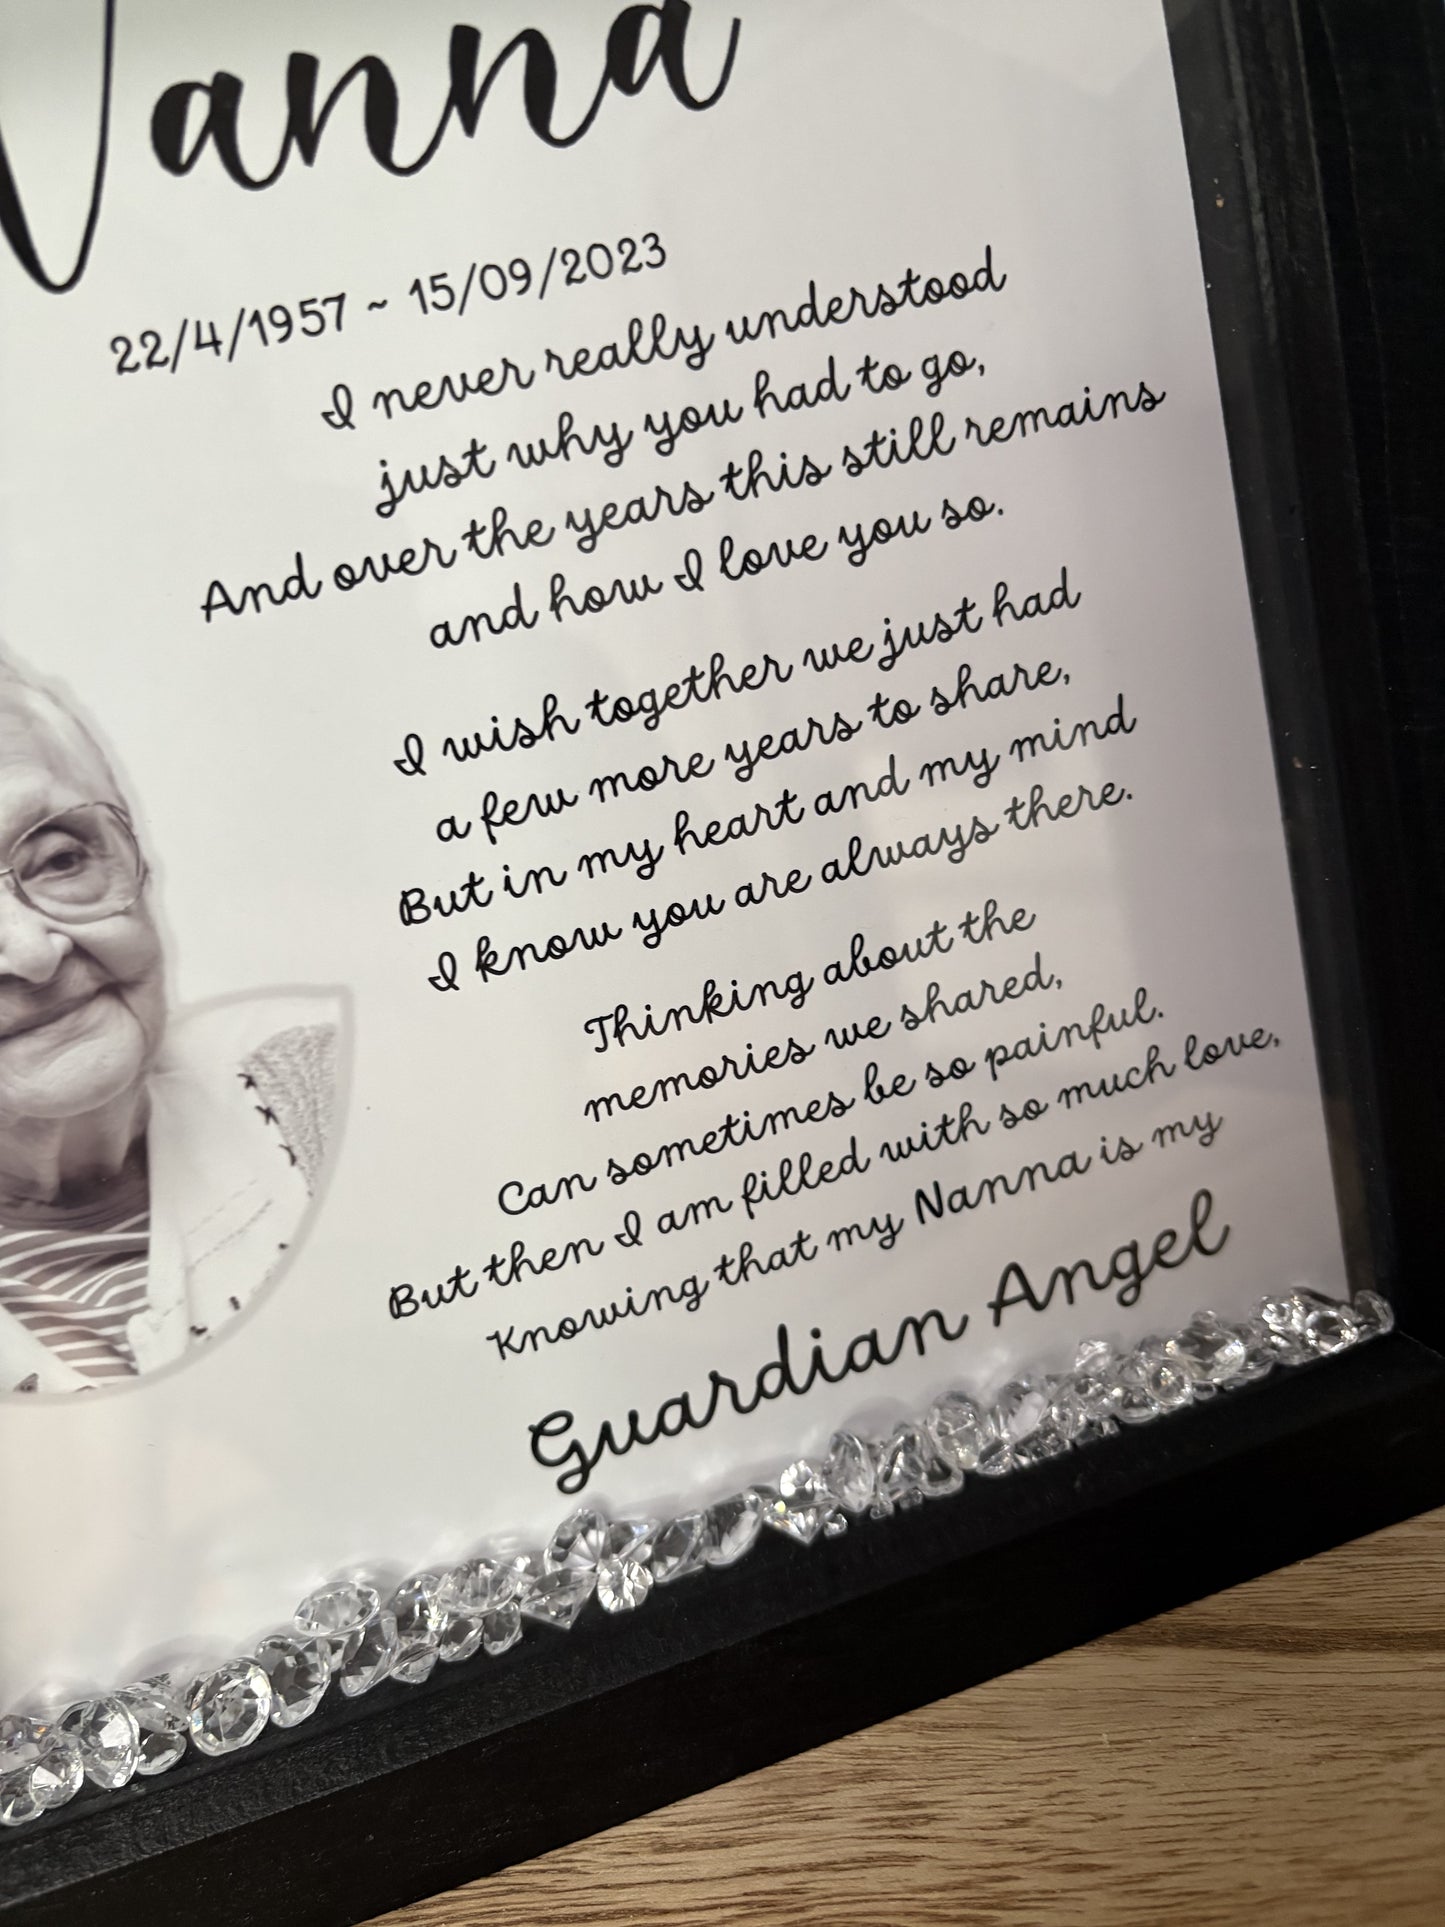 Nanna
22/4/1957 ~ 15/09/2023
I never really understood
just why you had to go,
And over the years this still remains
and how I love you so.
I wish together we just had
a few more years to share,
But in my heart and my mind
I know you are always there.
Thinking about the
memories we shared,
Can sometimes be so painful.
But then I am filled with so much love,
Knowing that my Nanna is my
Guardian Angel